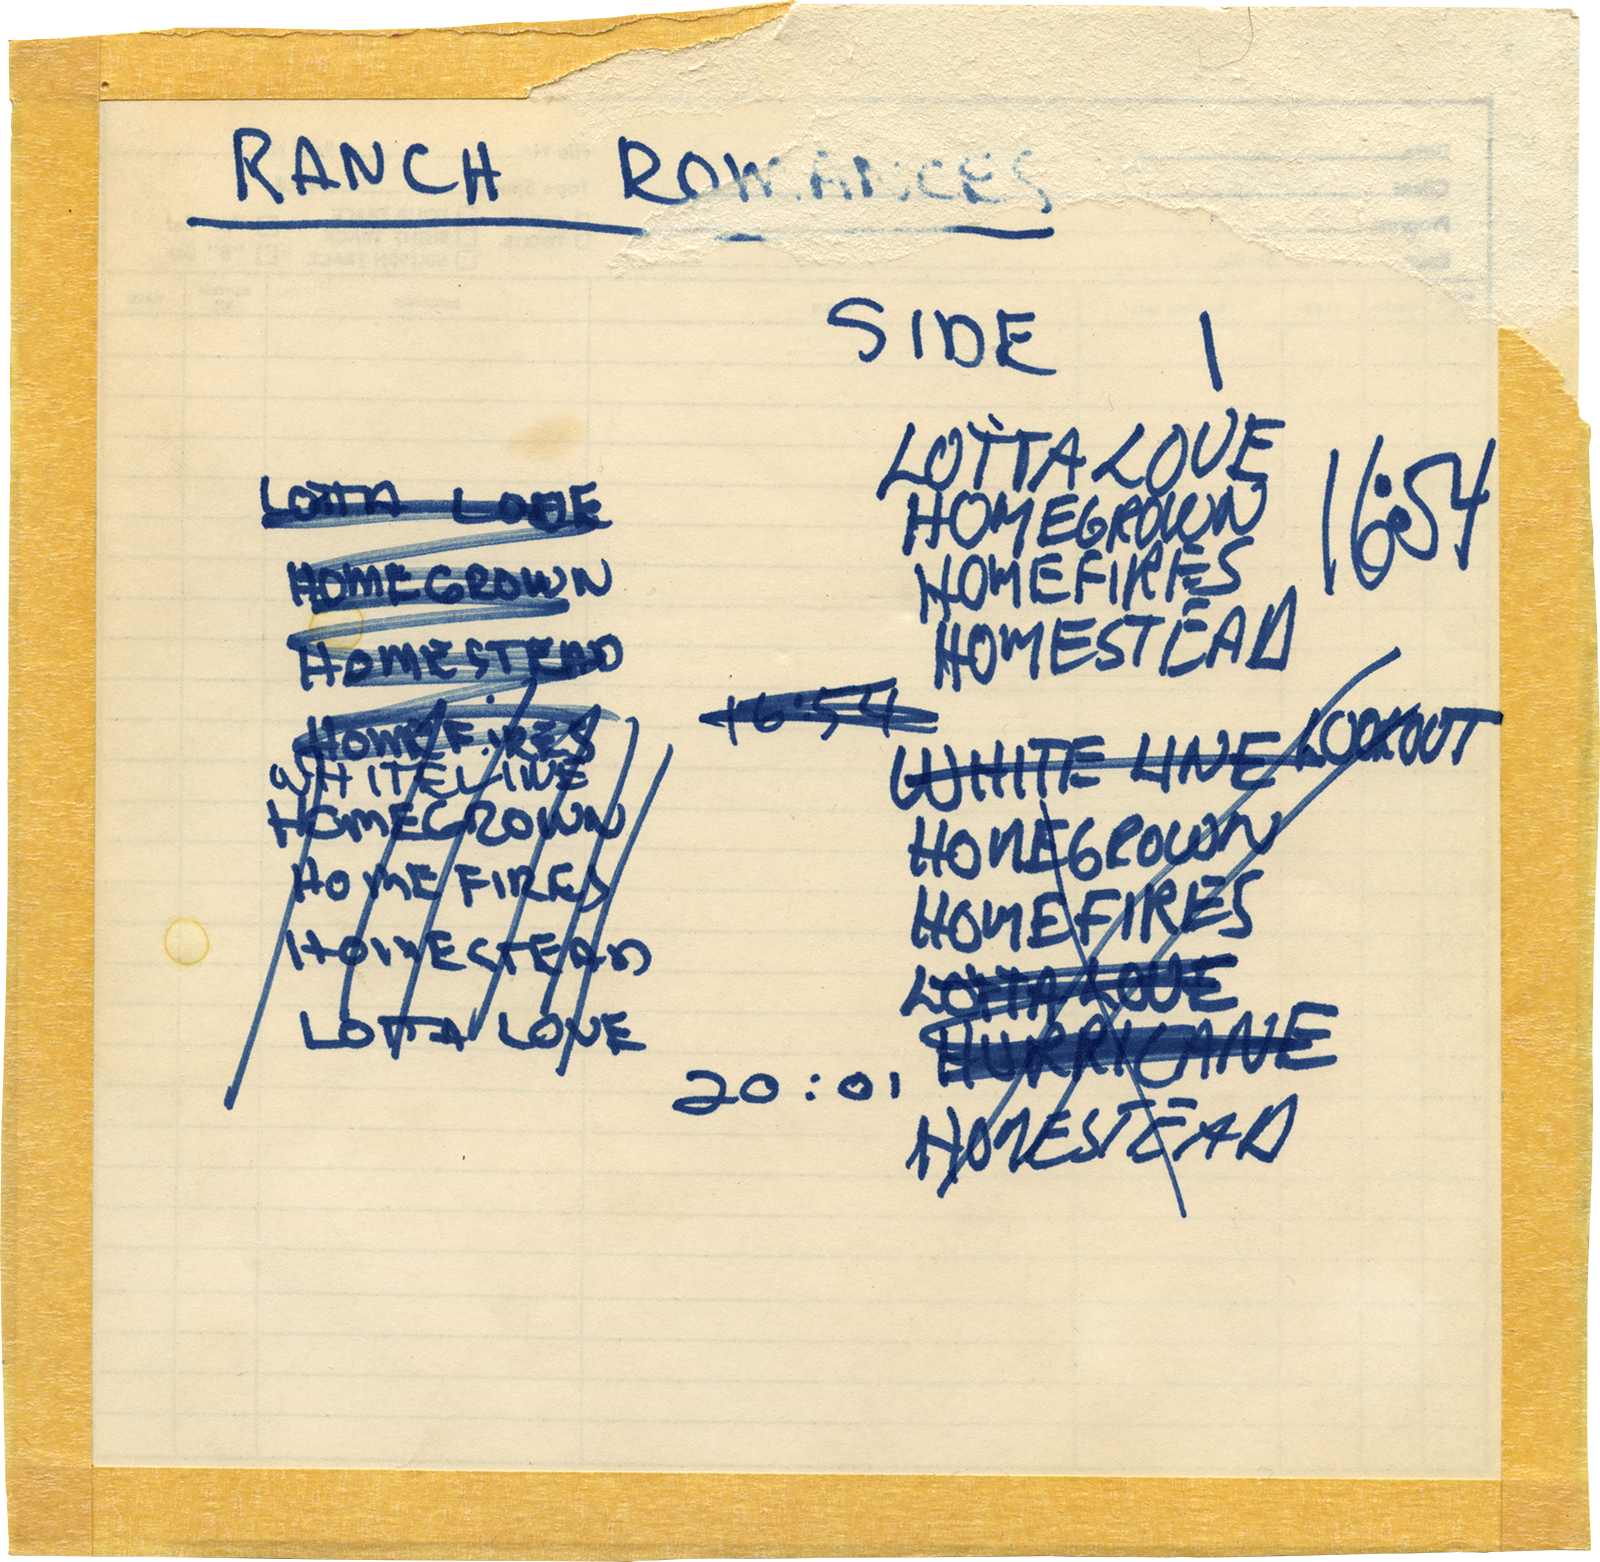 RANCH ROMANCES
SIDE 1
LOTTA LOVE
HOMEGROWN
HOMEFIRES
HOMESTEAD
16:54
LOTTA LOVE
HOMEGROWN
HOMESTEAD
HOMEFIRES
WHITELINE
HOMEGROWN
HOMEFIRES
HOMESTEAD
LOTTA LOVE
16:54
WHITE LINE LOOKOUT
HOMEGROWN
HOMEFIRES
LOTTA LOVE
HURRICANE
20:01
HOMESTEAD